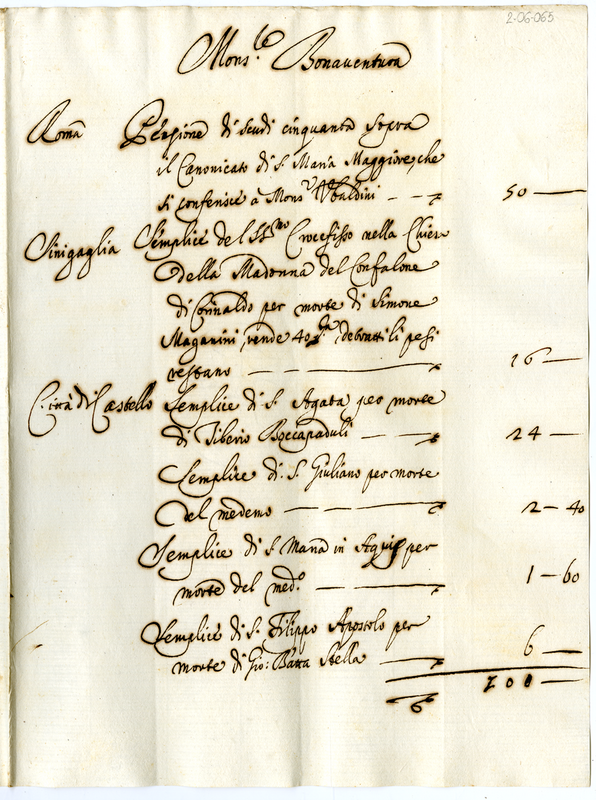 2-06-065
Mons.re Bonaventura
Roma Pensione di scudi cinquanta sopra
il Canonicato di S. Maria Maggiore, che
si conferisce a Mons.r Ubaldini 50
Sinigaglia Semplice del SS.mo Crocefisso nella Chiesa
della Madonna del Confalone
di Corinaldo per morte di Simone
Maganini, rende 40 detratti li pesi
restano 16
Città di Castello Semplice di S. Agata per morte
di Tiberio Boccapaduli 24
Semplice di S. Giuliano per morte
del medemo 2-40
Semplice di S. Maria in Aquis per
morte del med.o 1-60
Semplice di S. Filippo Apostolo per
morte di Gio: Batta Stella 6
100
6